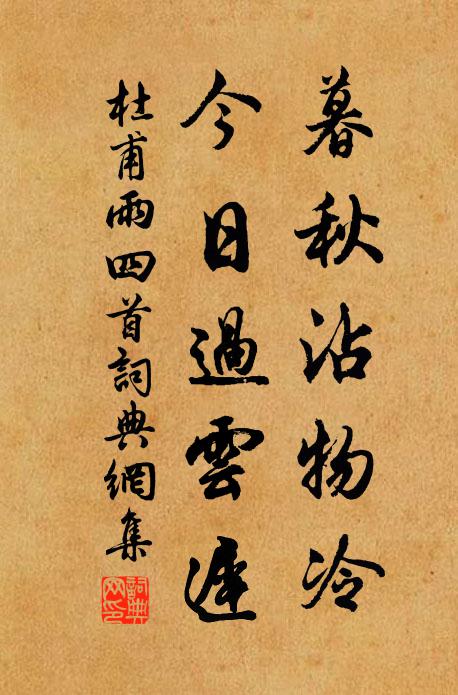 暮秋沾物冷
今日過雲遲
杜甫雨四首詞典網集
詞典網印